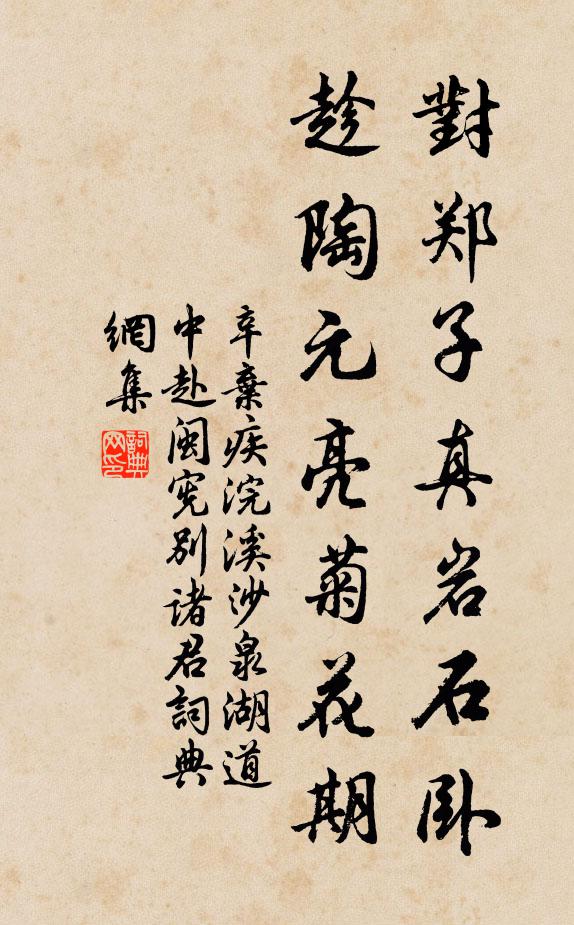 對郑子真岩石卧
趁陶元亮菊花期
辛棄疾浣溪沙泉湖道
中赴閩宪别諸君詞典
網集
詞典
网印